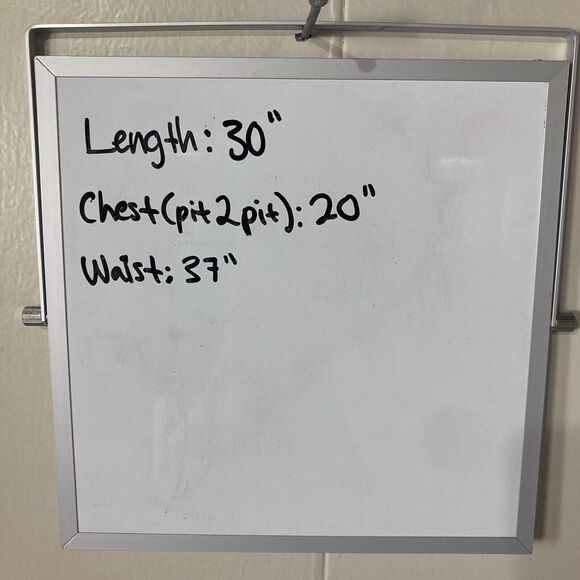 Length: 30"
Chest(pit2pit): 20"
Waist: 37"